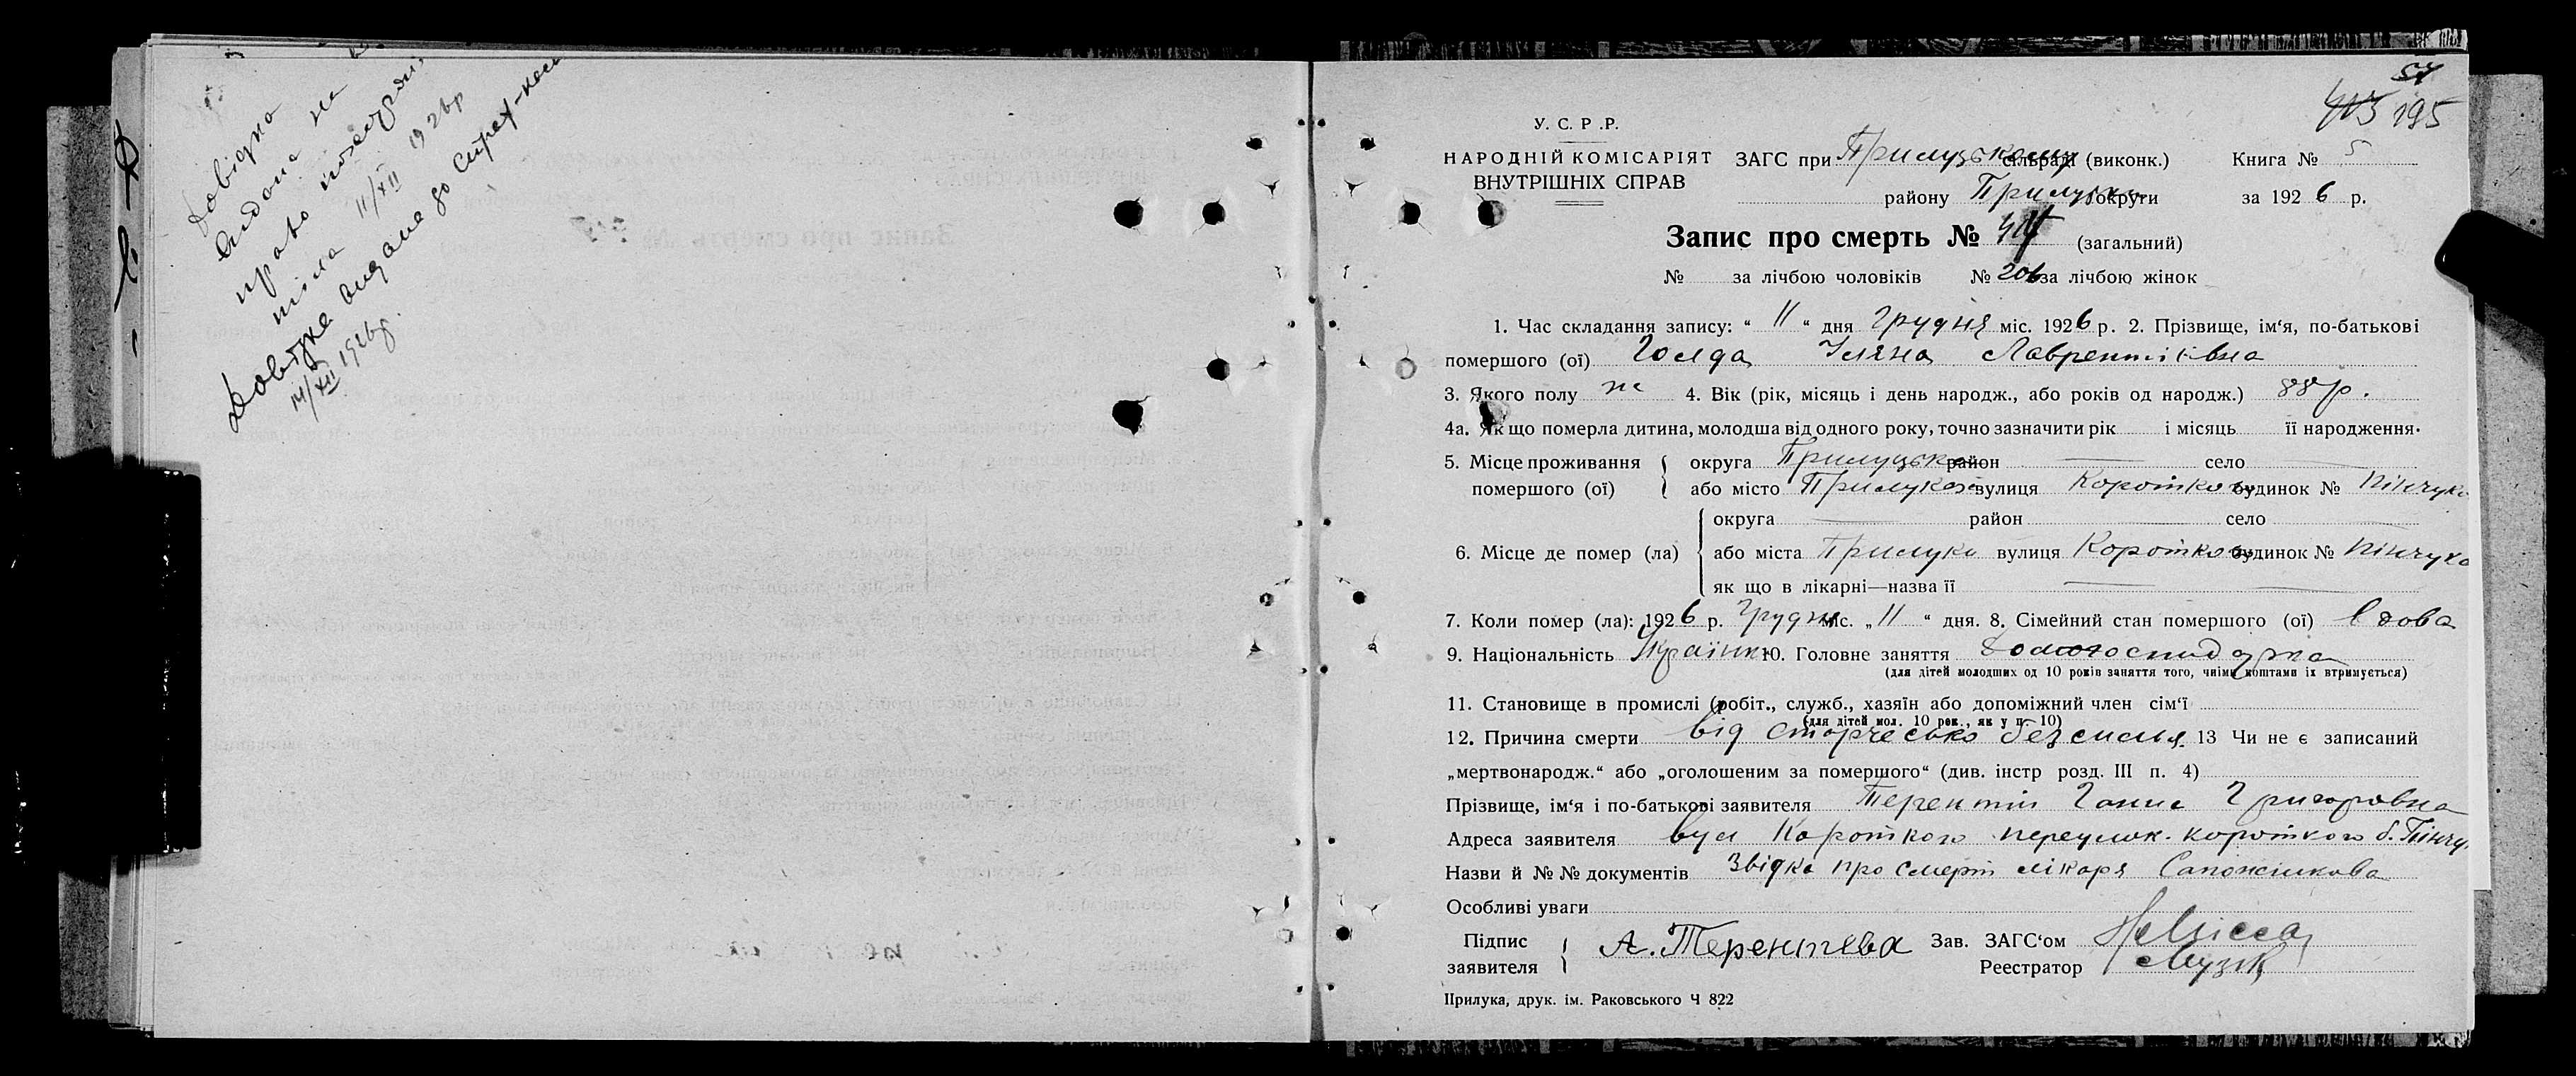 Довідка
видана на
право похорону
тіла 11/XII 1926р
Довідка видана до страх-каси
14/XII 1926р.
57
195
У. С. Р .Р.
НАРОДНІЙ КОМІСАРІЯТ
ВНУТРІШНІХ СПРАВ
ЗАГС при Прилуцькому сільраді (виконк.) Книга № 5
району Прилуцьк. округи за 1926 р.
Запис про смерть № (загальний)
№ за лічбою чоловіків № 206 за лічбою жінок
1. Час складання запису: “ 11 “ дня Грудня міс. 1926 р. 2. Прізвище, ім‘я, по-батькові
помершого (ої) Голда Уляна Лаврентіївна
3. Якого полу ж 4. Вік (рік, місяць і день народж., або років од народж.) 88 р.
4а. Як що померла дитина, молодша від одного року, точно зазначити рік і місяць її народження.
5. Місце проживання помершого (ої) { округа Прилуцька район — село —
або місто Прилука вулиця Коротка будинок № Пінчука
6. Місце де помер (ла) { округа — район — село —
або міста Прилуки вулиця Коротка будинок № Пінчука
як що в лікарні—назва її — —
7. Коли помер (ла): 1926 р. Грудня міс. „ 11 “ дня. 8. Сімейний стан помершого (ої) Вдова
9. Національність Українка 10. Головне заняття Домогосподарка
(для дітей молодших од 10 років заняття того, чиїми коштами їх втримується)
11. Становище в промислі (робіт., служб., хазяїн або допоміжний член сім‘ї
(для дітей мол. 10 рок., як у п. 10)
12. Причина смерти від старческо безсилья 13 Чи не є записаний
„мертвонародж.“ або „оголошеним за помершого“ (див. інстр розд. III п. 4)
Прізвище, ім‘я і по-батькові заявителя Терентій Ганна Григоровна
Адреса заявителя вул Короткого переулок. короткого б. Пінчу.
Назви й № № документів Звідка про смерт лікаря Сапожнікова
Особливі уваги
Підпис заявителя { А. Терентьева Зав. ЗАГС‘ом
Реестратор
Прилука, друк. ім. Раковського Ч 822